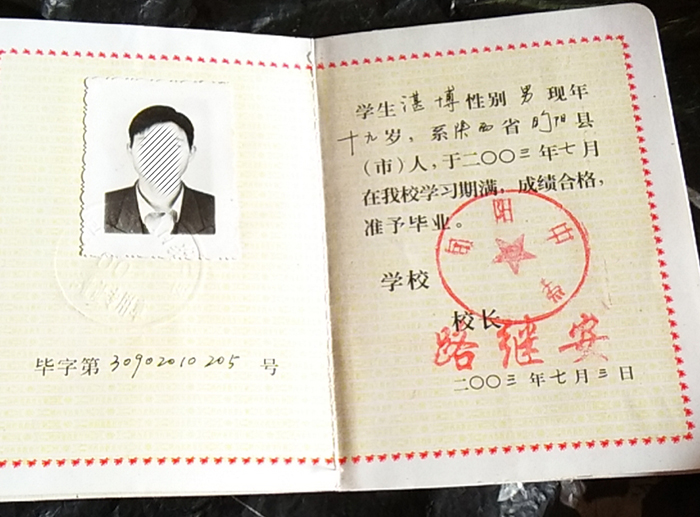 毕字第30902010205号
学生湛博性别男现年
十九岁，系陕西省旬阳县
（市）人，于二〇〇三年七月
在我校学习期满，成绩合格，
准予毕业。
旬阳中
学校
校长
路继安
二〇〇三年七月三日